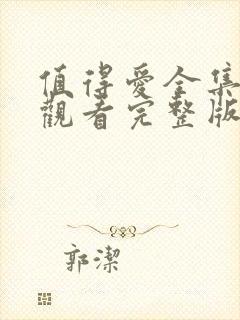 值得愛全集
觀看完整版
郭潔